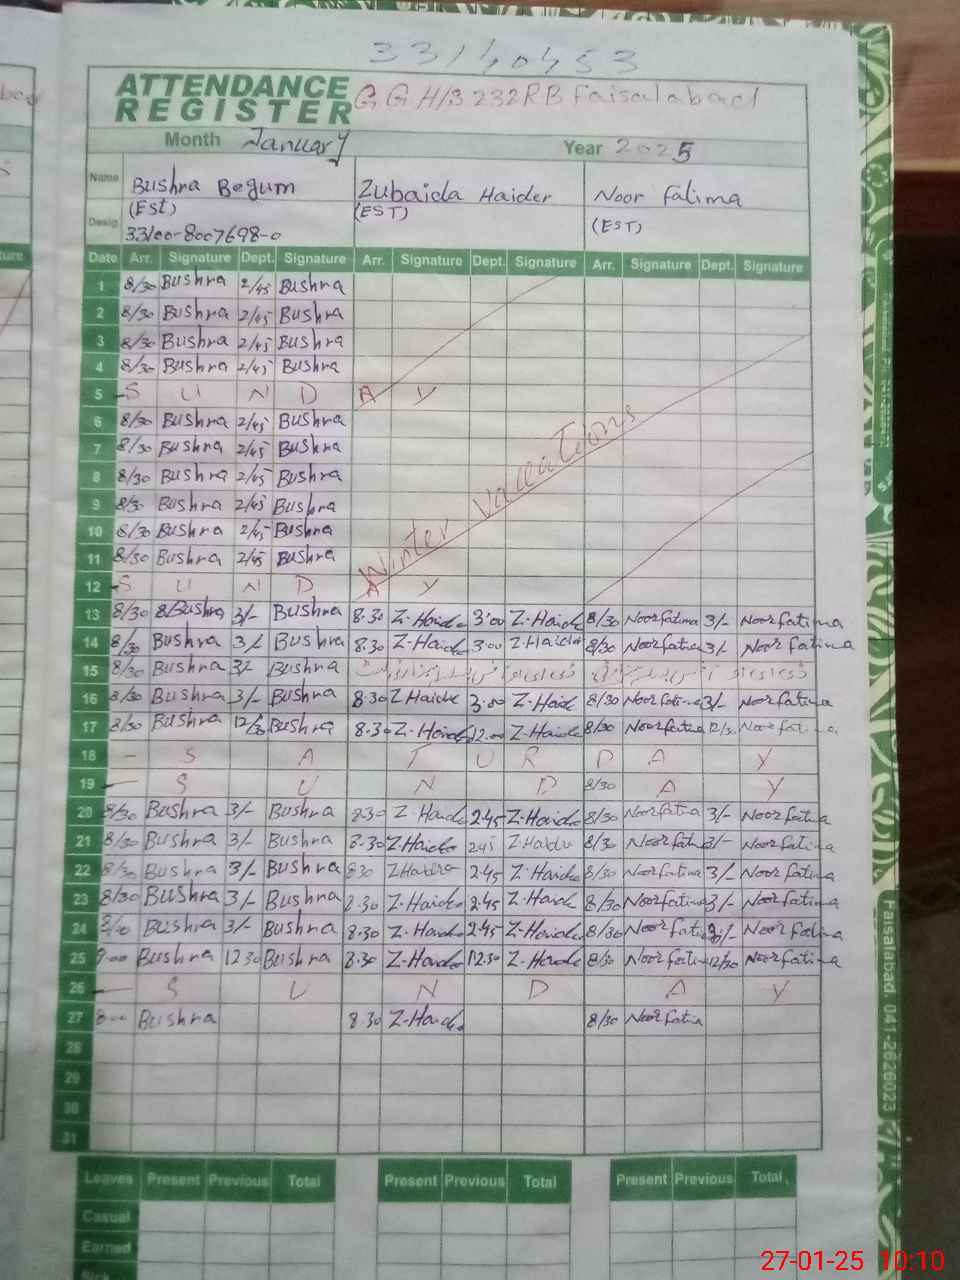 33140453
ATTENDANCE
REGISTER
G G H/S 232RB Faisalabad
Month January Year 2025
Name Bushra Begum Zubaida Haider Noor Fatima
Desig. (Est) (EST) (EST)
33100-8007698-0
Date Arr. Signature Dept. Signature Arr. Signature Dept. Signature Arr. Signature Dept. Signature
1 8/30 Bushra 2/45 Bushra
2 8/30 Bushra 2/45 Bushra
3 8/30 Bushra 2/45 Bushra
4 8/30 Bushra 2/45 Bushra
5 S U N D A Y
6 8/30 Bushra 2/45 Bushra
7 8/30 Bushra 2/45 Bushra
8 8/30 Bushra 2/45 Bushra
9 8/30 Bushra 2/45 Bushra
10 8/30 Bushra 2/45 Bushra
11 8/30 Bushra 2/45 Bushra
Winter Vacations
12 S U N D A Y
13 8/30 Bushra 3/- Bushra 8.30 Z-Haide 3:00 Z-Haide 8/30 Noor fatima 3/- Noor fatima
14 8/30 Bushra 3/- Bushra 8.30 Z-Haide 3:00 Z-Haide 8/30 Noor fatima 3/- Noor fatima
15 8/30 Bushra 3/- Bushra
16 8/30 Bushra 3/- Bushra 8.30 Z Haide 3.00 Z-Haide 8/30 Noor fatima 3/- Noor fatima
17 8/30 Bushra 12/30 Bushra 8.30 Z-Haide 12.00 Z-Haide 8/30 Noor fatima 12/30 Noor fatima
18 - S A T U R D A Y
19 - S U N D 8/30 A Y
20 8/30 Bushra 3/- Bushra 8.30 Z-Haide 2.45 Z-Haide 8/30 Noor fatima 3/- Noor fatima
21 8/30 Bushra 3/- Bushra 8.30 Z-Haide 2.45 Z-Haide 8/30 Noor fatima 3/- Noor fatima
22 8/30 Bushra 3/- Bushra 8.30 Z Haidra 2.45 Z-Haide 8/30 Noor fatima 3/- Noor fatima
23 8/30 Bushra 3/- Bushra 8.30 Z-Haide 2.45 Z-Haide 8/30 Noor fatima 3/- Noor fatima
24 8/30 Bushra 3/- Bushra 8.30 Z-Haide 2.45 Z-Haide 8/30 Noor fatima 3/- Noor fatima
25 Bushra 12 30 Bushra 8.30 Z-Haide 12.30 Z-Haide 8/30 Noor fatima 12/30 Noor fatima
26 - S U N D A Y
27 8-00 Bushra 8.30 Z-Haide 8/30 Noor fatia
28
29
30
31
Leaves Present Previous Total Present Previous Total Present Previous Total
Casual
Earned
Sick
Faisalabad. 041-2626023
27-01-25 10:10